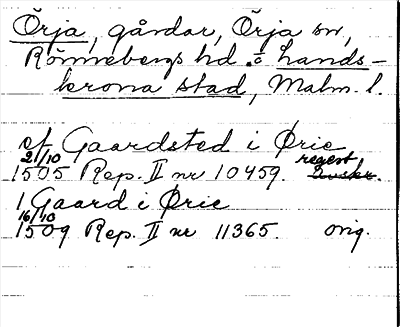 Örja, gårdar, Örja sn,
Rönnebergs hd o Lands-
krona stad, Malm. l.
cf Gaardsted i Ørie
21/10 regest
1505 Rep. II nr 10459.
1 Gaard i Ørie
16/10
1509 Rep. II nr 11365. orig.